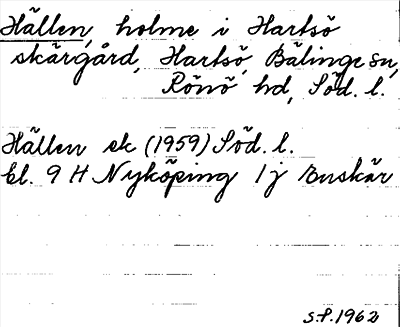 Hällen, holme i Hartsö
skärgård, Hartsö, Bälinge sn,
Rönö hd, Söd. l.
Hällen ek (1959) Söd. l.
bl. 9 H Nyköping 1 j Enskär
S.P. 1962